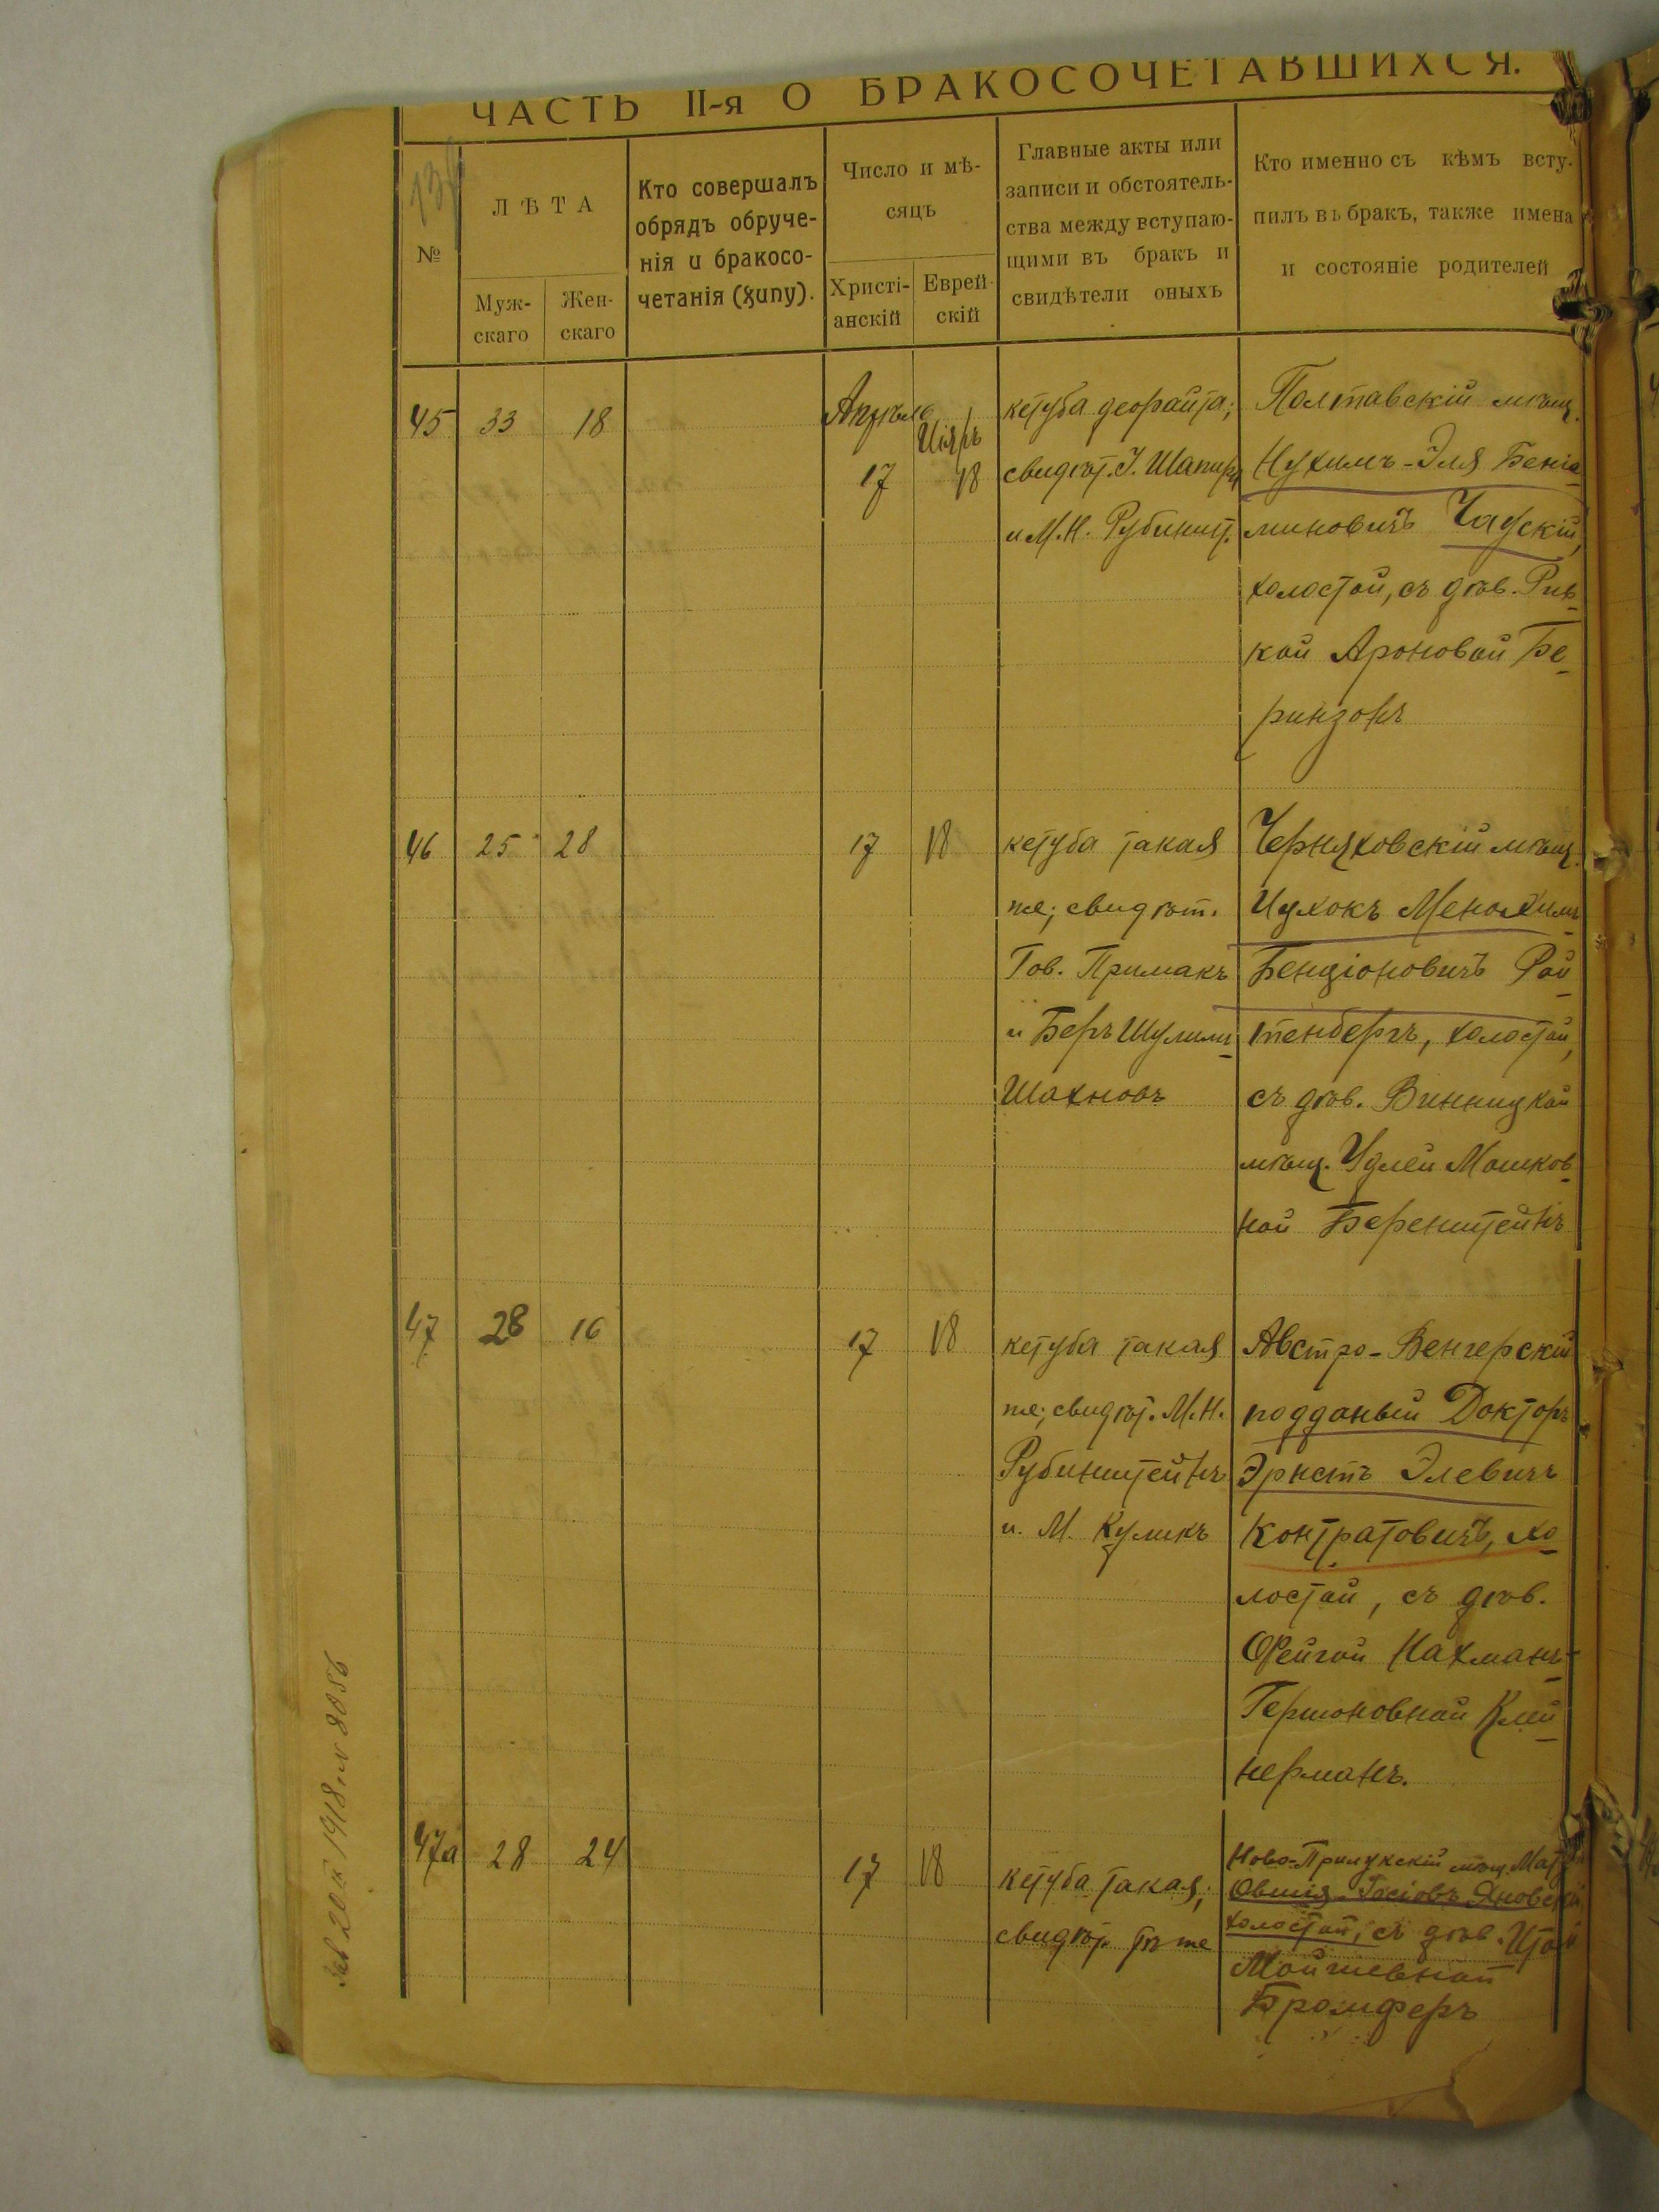 ЧАСТЬ II-я О БРАКОСОЧЕТАВШИХСЯ.
№
ЛѢТА
Муж-
скаго
Жен-
скаго
Кто совершалъ
обрядъ обруче-
нія и бракосо-
четанія (хупу).
Число и мѣ-
сяцъ
Христі-
анскій
Еврей-
скій
Главные акты или
записи и обстоятель-
ства между вступаю-
щими въ бракъ и
свидѣтели оныхъ
Кто именно съ кѣмъ всту-
пилъ въ бракъ, также имена
и состояніе родителей
45 33 18
Апрѣль
Иіяръ
17 18
кетуба деорайта;
свидѣт. І. Шапиро
и М.Н. Рубиншт.
Полтавскій мѣщ.
Нухимъ-Эля Беніа-
миновичъ Чаускій,
холостой, съ дѣв. Рив-
кой Ароновой Бе-
ринзонъ
46 25 28 17 18
кетуба такая
же; свидѣт.
Гов. Примакъ
и Беръ Шулимъ
Шахновъ
Черняховскій мѣщ.
Ицхокъ Менахимъ
Бенціоновичъ Рой-
тенбергъ, холостой,
съ дѣв. Винницкой
мѣщ. Удлей Мошков-
ной Беренштейнъ
47 28 16 17 18
кетуба такая
же; свидѣт. М.Н.
Рубинштейнъ
и М. Куликъ
Австро-Венгерскій
подданый Докторъ
Эрнстъ Элевичъ
Контратовичъ, хо-
лостой, съ дѣв.
Фейгой Нахманъ-
Гершоновной Клей-
нерманъ.
47а 28 24 17 18
кетуба такая;
свидѣт. тѣ же
Ново-Прилукскій мѣщ.
Овшія Іосіовъ Яновскій
холостой, съ дѣв.
Мойшевной
Бромферъ
20 1918 № 8056